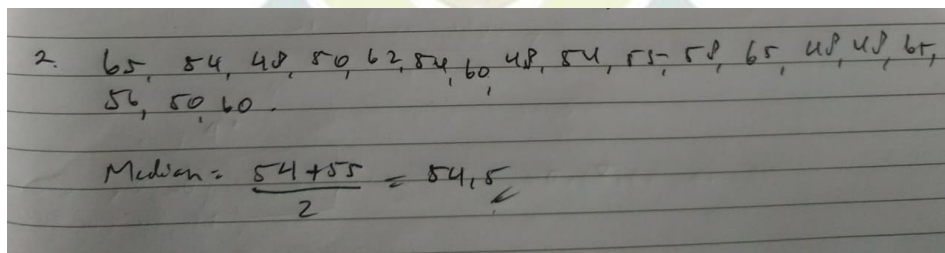 2. 65, 54, 48, 50, 62, 54, 60, 48, 54, 55, 58, 65, 48, 48, 65,
56, 50, 60.
Median = 54+55
2
= 54,5